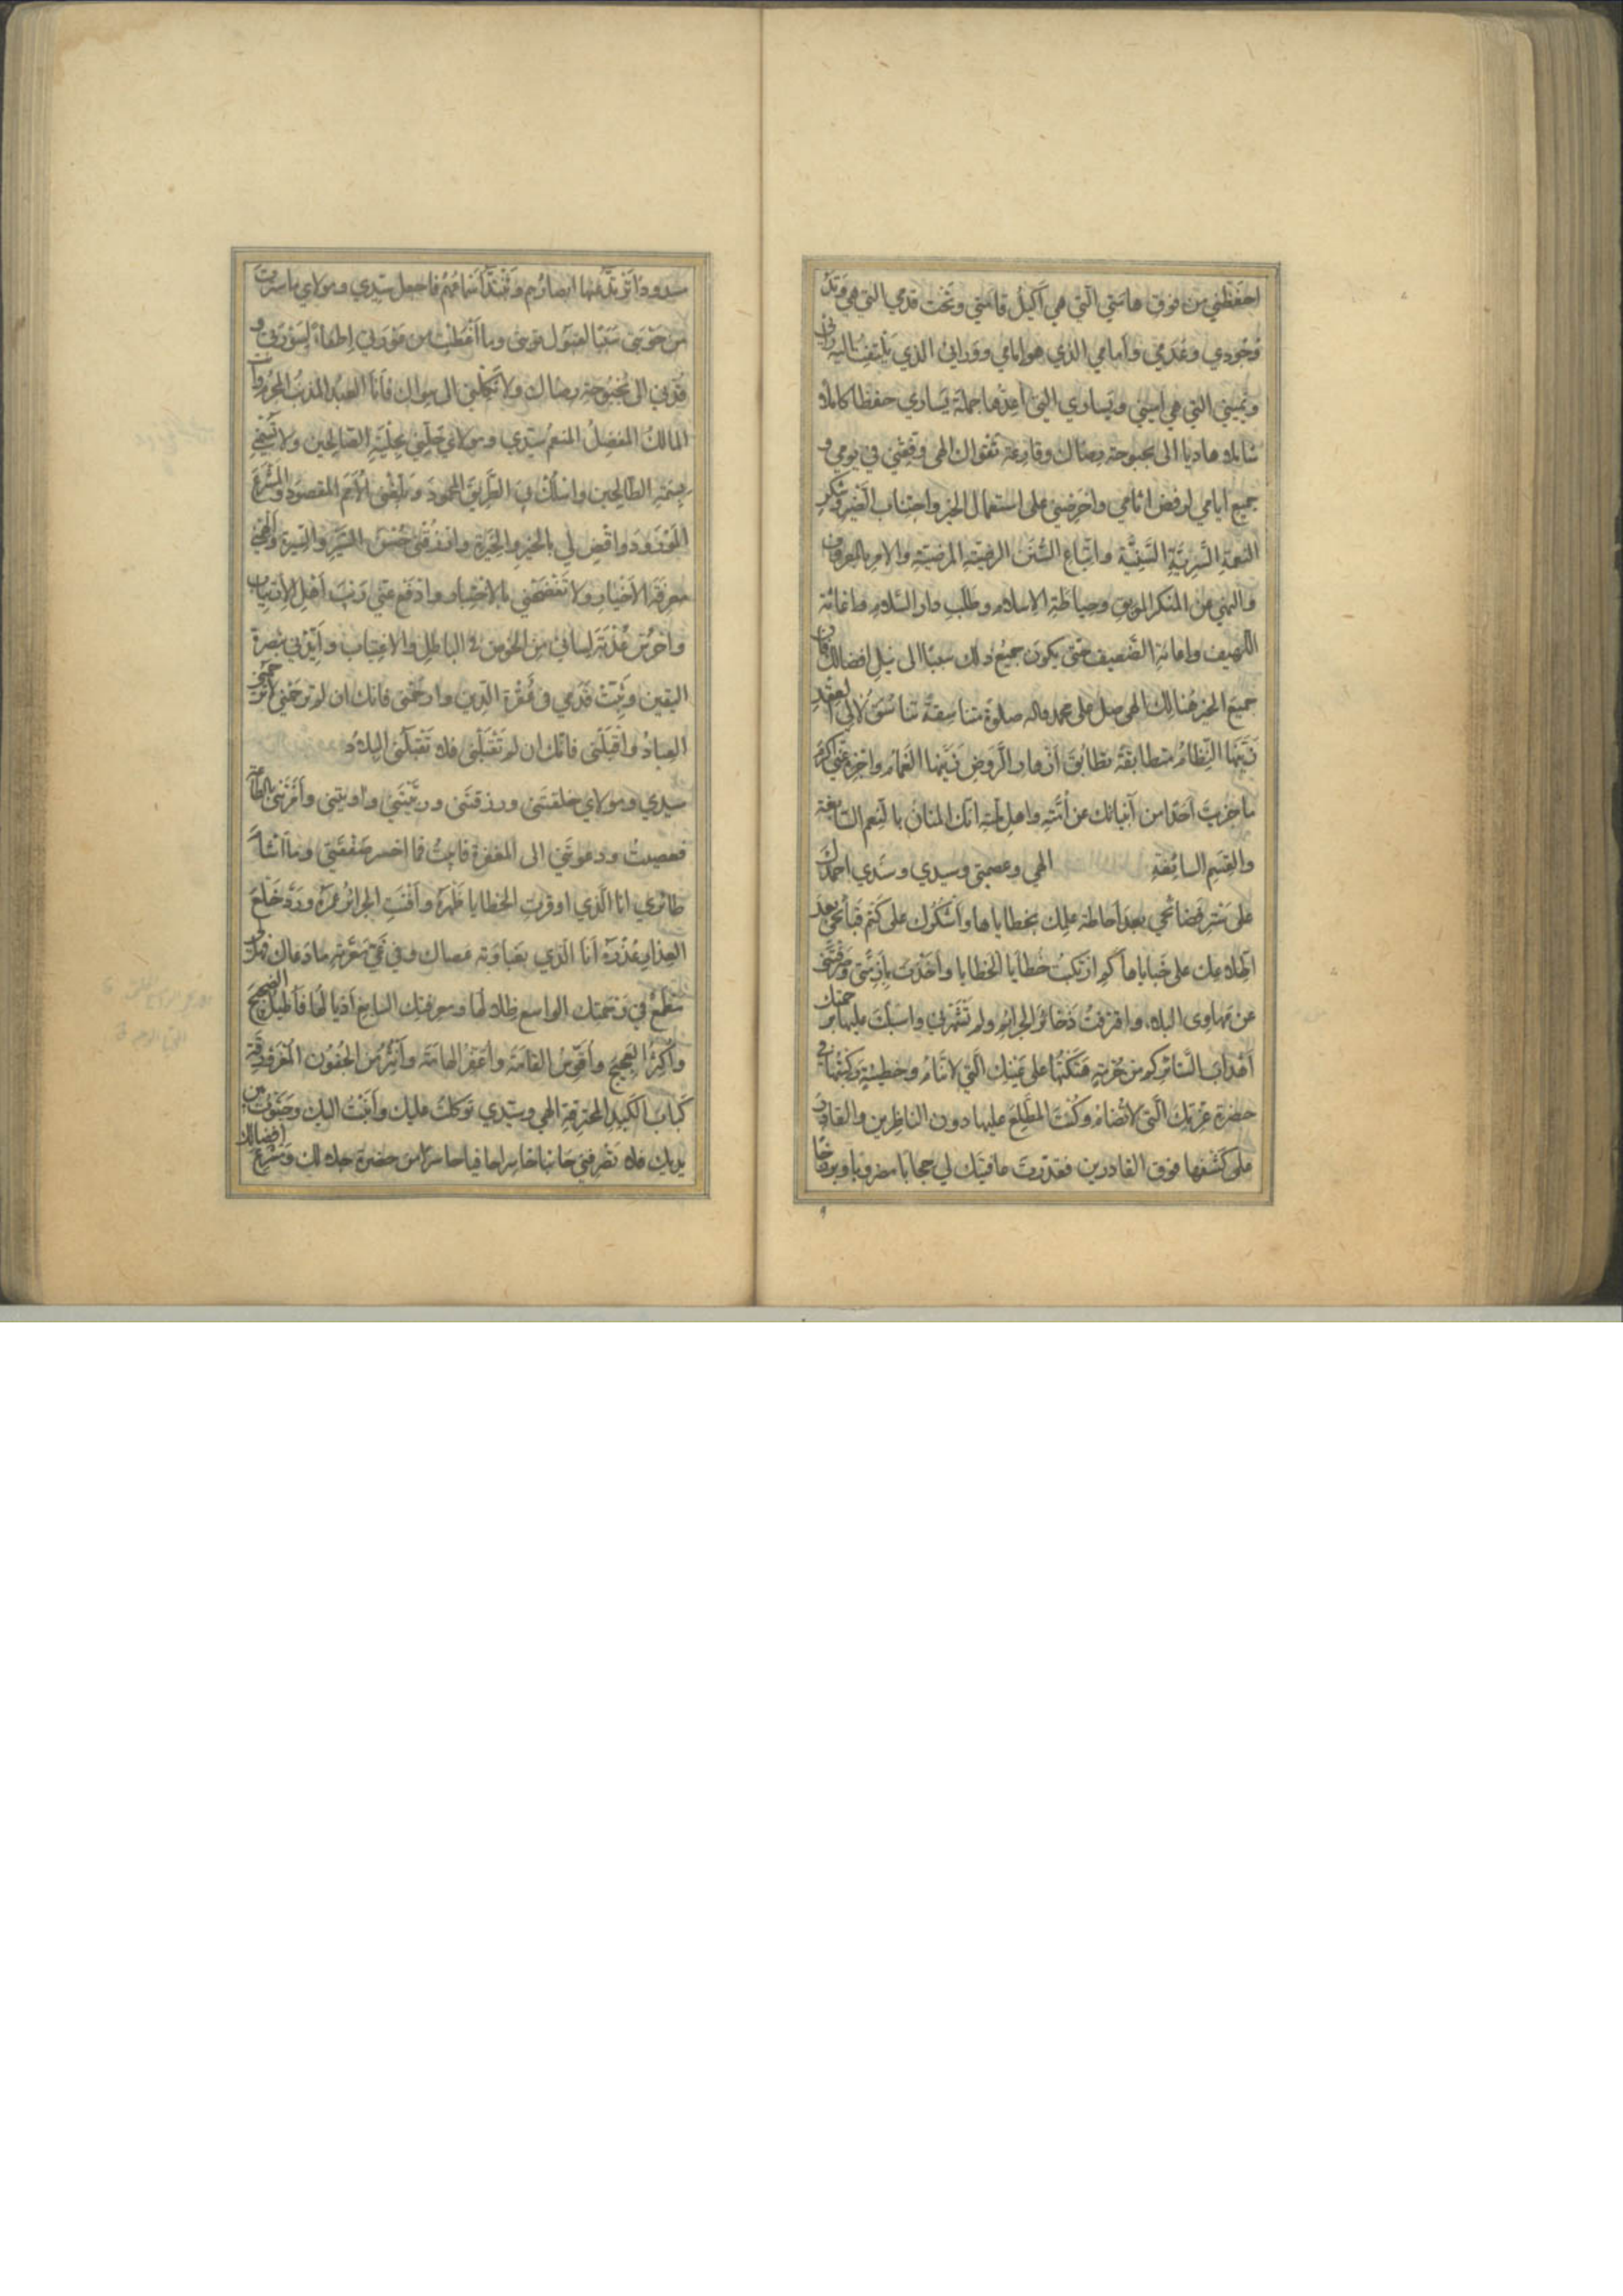 احفظني من فوق هامتي التي هي اكيل قامتي وتحت قدمي التي هي وتد
وجودي وعدمي وأمامي الذي هو امامي وورائي الذي يلتفت اليه
ويميني التي هي اميني ويساري التي اعدها جملة يساري حفظا كاملا
شاملا هاديا الى بحبوحة رضاك وقارعة تقواك الهي وفقني في يومي و
جميع ايامي لرفض اثامي واحرضني على استعمال الخير واجتناب الضير وشكر
النعمة السرية السنية واتباع السنن الرضية المرضية والامر بالمعروف
والنهي عن المنكر وحياطة الاسلام وطلب دار السلام واغاثة
اللهيف واعانة الضعيف حتى يكون جميع ذلك سببا الى نيل افضالك فان
جميع الخير هنالك الهي صل على محمد واله صلوة متناسقة تناسق لآلي العقد
زينها النظام متطابقة تطابق ازهار الروض زينها الغمام واجزه عني اكرم
ما جزيت احدا من أنبيائك عن أمته واهل ملته انك المنان بالنعم السابغة
والقسم السائغة الهي وعصمتي وسيدي وسندي احمدك
على ستر فضائحي بعد احاطة علمك بخطاياها واشكرك على كتم قبائحي بعد
اطلاعك على خباياها كم ارتكبت خطايا الخطايا واخذت بازمتي وصرفتني
عن مهاوى البلاء واقترفت ذخائر الجرائم ولم تشهرني واسبلت عليها برحمتك
اهداب الستائر كم من حرمة هتكتها على عينك التي لا تنام وخطيئة ركبتها في
حضرة عزتك التي لا تضام وكنت المطلع عليها دون الناظرين والقادر
على كشفها فوق القادرين فقدرت عافيتك لي حجابا مضروبا وبرزخا
مسدودا ترتد عنها ابصارهم وتنسد اسماعهم فاجعل سيدي ومولاي ما سترت
من حوبتي سببا لقبول توبتي وما اغضيت من اطفاء لسورتي و
قدني الى بحبوحة رضاك ولا تكلني الى سواك فأنا العبد المذنب المجرم وانت
المالك المفضل المنعم سيدي ومولاي حلني بحلية الصالحين ولا تسمني
بسمة الطالحين واسلك بي الطريق المحمود وبلغني الأمم المقصود والمشرع
المورود واقض لي بالخير والخيرة وارزقني حسن السير والسيرة والهمني
معرفة الاخيار ولا تفضحني بالاختبار وادفع عني ريب اهل الارتياب
واحرس عذبة لساني من الخوض في الباطل والاغتياب وايدني بنصرة
اليقين وثبت قدمي في الدين وارحمني فانك ان لم ترحمني لا ترحمني
العباد واقبلني فانك ان لم تقبلني فلا تقبلني البلاد
سيدي ومولاي خلقتني ورزقتني وربيتني واويتني وأمرتني بالطاعة
فعصيت ودعوتني الى المغفرة فابيت فما اخسر صفقتي وما أشأم
طائري انا الذي اوقرت الخطايا ظهره وأفنت الجرائر عمره وردت خلع
العذار عذره أنا الذي بغباوته عصاك وفي معرته ما دعاك فهل لي
مطمع في رحمتك الواسع ظلالها ومعرفتك السابغ اذيالها فأطيل الضجيج
واكثر العجيج واقوس القامة واعفر الهامة وأنثر من الجفون المغرورقة
كباب الكبد المحترقة الهي وسيدي توكلت عليك وأنبت اليك وجثوت بين
يديك فلا تصرفني خائبا خاسرا من حضرة جلالك ومشرع افضالك